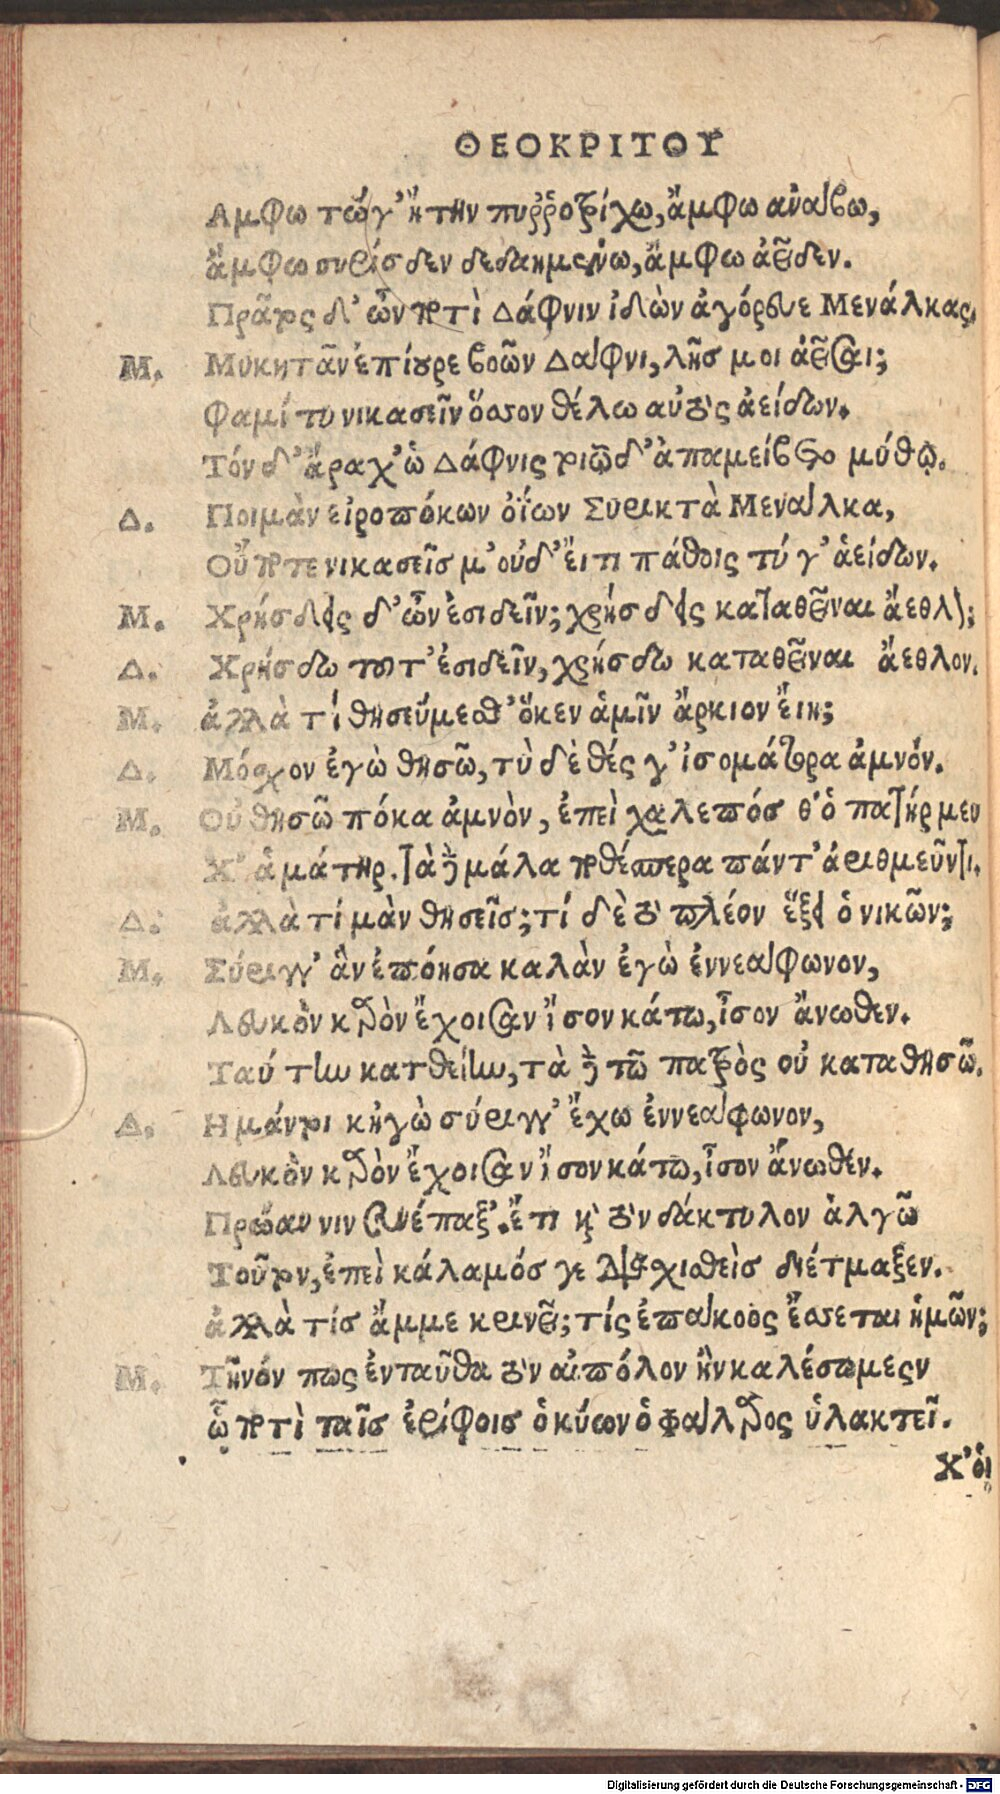 ΘΕΟΚΡΙΤΟΥ
Αμφω τώ γ' ἤτην πυῤῥοτρίχω, ἄμφω ἀνάβω,
ἄμφω συρίσδεν δεδαημένω, ἄμφω ἀείδεν.
Πρᾶτος δ' ὦν ποτὶ Δάφνιν ἰδὼν ἀγόρευε Μενάλκας,
Μ. Μυκητᾶν ἐπίουρε βοῶν Δάφνι, λῇσ μοι ἀεῖσαι;
Φαμί τυ νικασεῖν ὅσσον θέλω αὐτὸς ἀείδων.
Τόν δ' ἄρα χ' ὡ Δάφνις τοιῷδ' ἀπαμείβετο μύθῳ.
Δ. Ποιμὰν εἰροπόκων ὀΐων Συρικτὰ Μενάλκα,
Οὔποτε νικασεῖσ μ' οὐδ' ἔι τι πάθοις τύ γ' ἀείδων.
Μ. Χρήσδεις δ' ὦν ἐσιδεῖν; χρήσδεις καταθεῖναι ἄεθλον;
Δ. Χρήσδω τοῦτ' ἐσιδεῖν, χρήσδω καταθεῖναι ἄεθλον.
Μ. ἀλλὰ τί θησεύμεσθ' ὅκεν ἁμῖν ἄρκιον ἔιη;
Δ. Μόσχον ἐγὼ θησῶ, τὺ δὲ θές γ' ἰσομάτορα ἀμνόν.
Μ. Οὐ θησῶ πόκα ἀμνὸν, ἐπεὶ χαλεπόσ θ' ὁ πατήρ μευ
Χ' ἁ μάτηρ. τὰ δὲ μάλα ποθέσπερα πάντ' ἀριθμεῦντι.
Δ. ἀλλὰ τί μὰν θησεῖσ; τί δὲ τὸ πλέον ἕξει ὁ νικῶν;
Μ. Σύριγγ' ἃν ἐπόησα καλὰν ἐγὼ ἐννεάφωνον,
Λευκὸν κηρὸν ἔχοισαν ἴσον κάτω, ἶσον ἄνωθεν.
Ταύτην κατθείην, τὰ δὲ τῶ πατρὸς οὐ καταθησῶ.
Δ. Η μάν τοι κἠγὼ σύριγγ' ἔχω ἐννεάφωνον,
Λευκὸν κηρὸν ἔχοισαν ἴσον κάτω, ἶσον ἄνωθεν.
Πρώαν νιν συνέπαξ'. ἔτι καὶ τὸν δάκτυλον ἀλγῶ
Τοῦτον, ἐπεὶ κάλαμόσ γε διασχισθεὶσ διέτμαξεν.
ἀλλὰ τίσ ἄμμε κρινεῖ; τίς ἐπάκοος ἔσσεται ἡμῶν;
Μ. Τῆνόν πως ἐνταῦθα τὸν αἰπόλον ἢν καλέσωμεςν
ᾧ ποτὶ ταῖσ ἐρίφοισ ὁ κύων ὁ φάλαρος ὑλακτεῖ.
Χ' ὁι
Digitalisierung gefördert durch die Deutsche Forschungsgemeinschaft - DFG